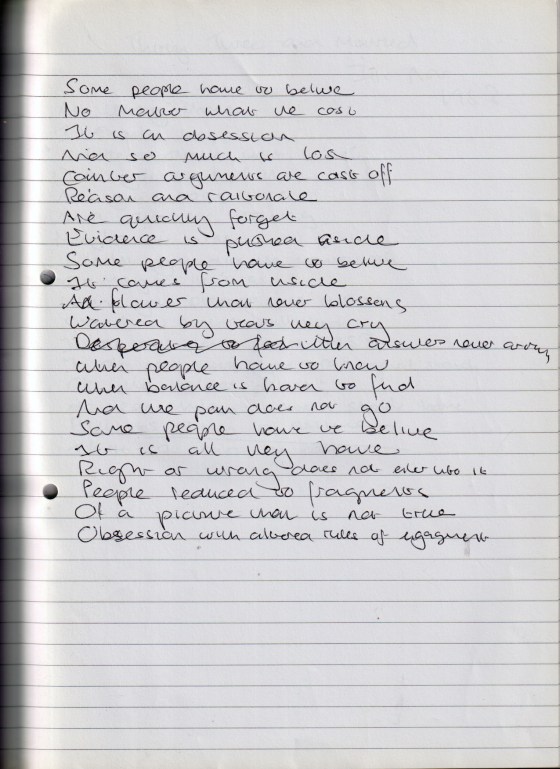 Some people have to belive
No matter what the cost
It is an obsession
And so much is lost
Counter arguments are cast off
Reason and rationale
Are quickly forget
Evidence is pushed aside
Some people have to belive
It comes from inside
A flower that never blossoms
Watered by tears they cry
Desperate to feed when answers never arrive
When people have to know
When balance is hard to find
And the pain does not go
Some people have to belive
It is all they have
Right or wrong does not enter into it
People reduced to fragments
Of a picture that is not true
Obsession with altered rules of engagment